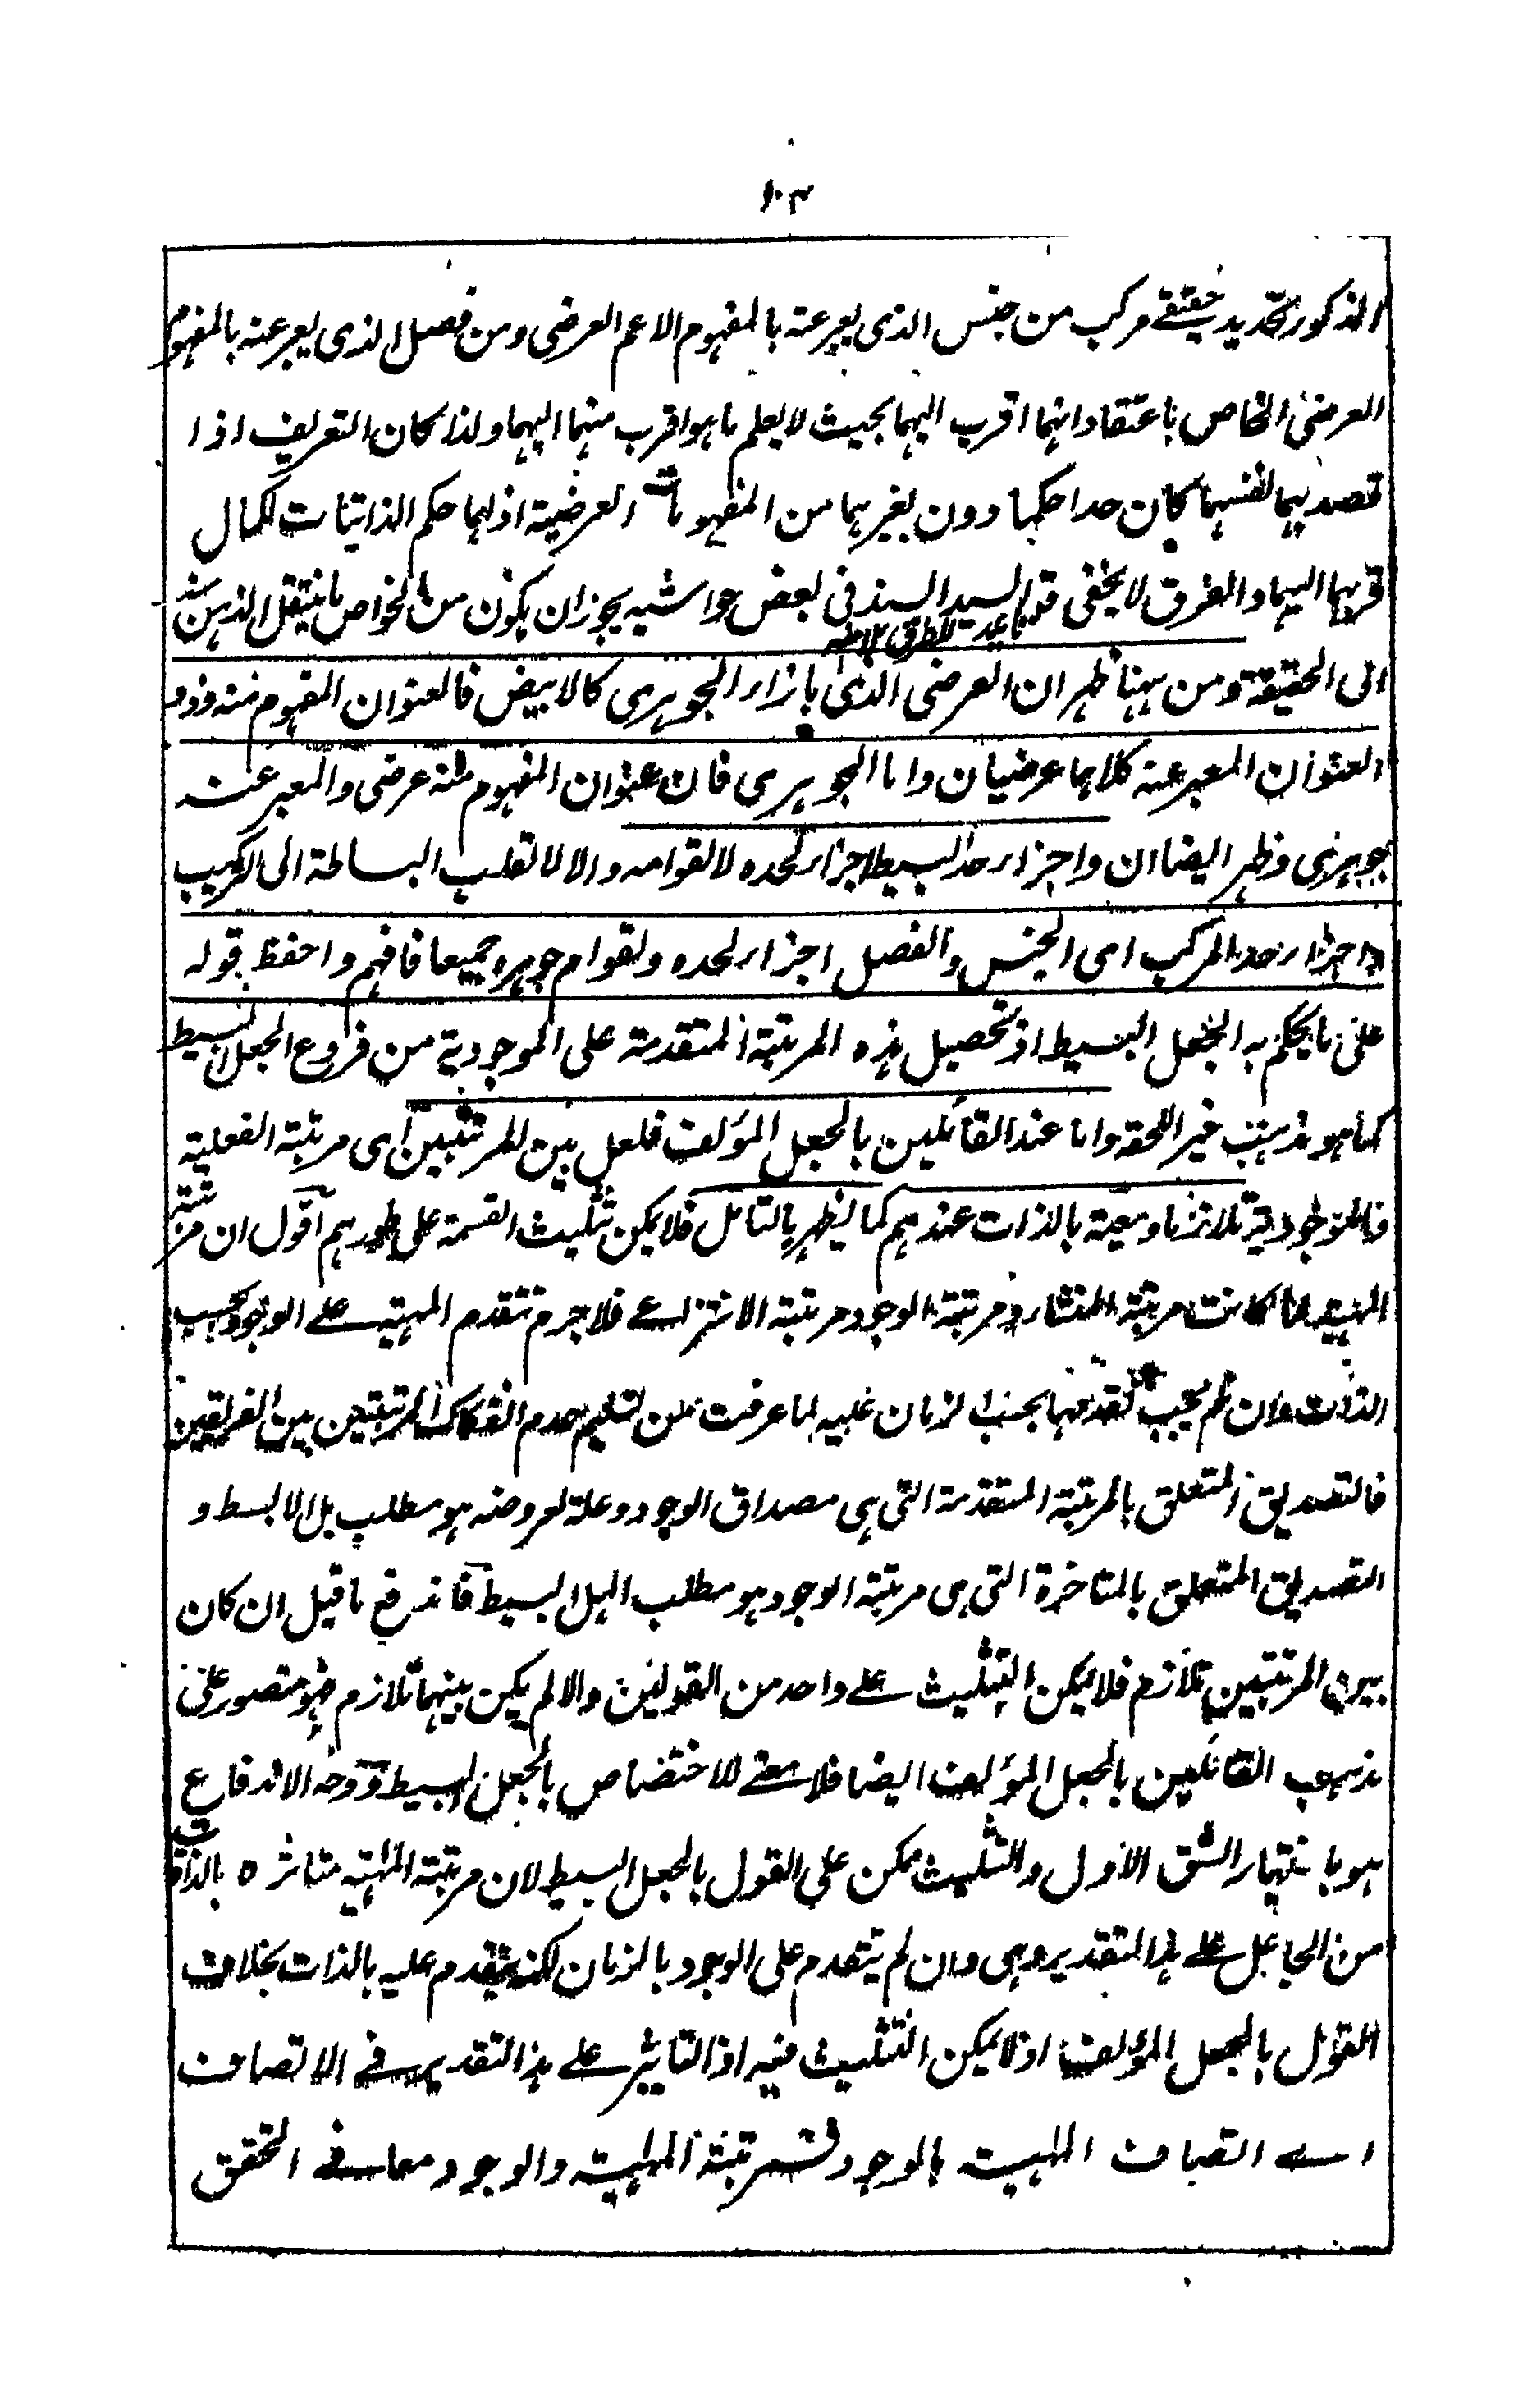 ١٠٣
المذكور تحديد حقيقے مركب من جنس الذى يعبر عنه بالمفهوم الاعم العرضى ومن فصل الذى يعبر عنه بالمفهوم
العرضى الخاص باعتقاد انهما اقرب اليهما بحيث لا يعلم ما هو اقرب منهما اليهما ولذا كان التعريف اذا
قصد بهما لنفسهما كان حدا حكميا دون بغيرهما من المفهومات العرضية اذ لهما حكم الذاتيات لكمال
قربهما اليهما والفرق لا يخفى قوله السيد السند فى بعض حواشيه يجوز ان يكون من الخواص ما ينتقل الذهن منه
الى الحقيقة ومن ههنا ظهر ان العرضى الذى بازاء الجوهرى كالابيض فالعنوان المفهوم منه وذو
العنوان المعبر عنه كلاهما عرضيان واما الجوهرى فان عنوان المفهوم منه عرضى والمعبر عنه
جوهرى وظهر ايضا ان واجزاء حد البسيط اجزاء لحده لا لقوامه والا لانقلب البساطة الى التركيب
واجزاء حد المركب اى الجنس والفصل اجزاء لحده ولقوام جوهره جميعا فافهم واحفظ قوله
على ما يحكم به الجعل البسيط اذ تحصيل هذه المرتبة المتقدمة على الموجودية من فروع الجعل البسيط
كما هو مذهب خير اللحقة واما عند القائلين بالجعل المؤلف فلعل بين المرتبتين اى مرتبة الفعلية
والموجودية تلازما ومعية بالذات عندهم كما يظهر بالتامل فلا يمكن تثليث القسمة على طورهم اقول ان مرتبة
المهية لما كانت مرتبة المنشاء ومرتبة الوجود مرتبة الانتزاعے فلا جرم تتقدم المهية علے الوجود بحسب
الذات وان لم يجب تقدمها بحسب الزمان عليه لما عرفت من تسليم عدم انفكاك المرتبتين بين الفريقين
فالتصديق المتعلق بالمرتبة المتقدمة التى هى مصداق الوجود وعلة لعروضه هو مطلب هل الابسط و
التصديق المتعلق بالمتاخرة التى هى مرتبة الوجود هو مطلب الهل البسيط فاندفع ما قيل ان كان
بين المرتبتين تلازم فلا يمكن التثليث علے واحد من القولين والا لم يكن بينهما تلازم فهو متصور على
مذهب القائلين بالجعل المؤلف ايضا فلا معنے للاختصاص بالجعل البسيط ووجه الاندفاع
هو باختيار الشق الاول والتثليث ممكن على القول بالجعل البسيط لان مرتبة المهية متاثرة بالذات
من الجاعل علے هذا التقدير وهى وان لم يتقدم على الوجود بالزمان لكنه يتقدم عليه بالذات بخلاف
القول بالجعل المؤلف اذ لا يمكن التثليث فيه اذ التاثير علے هذا التقدير فے الاتصاف
اے اتصاف المهية بالوجود فمرتبة المهية والوجود معا فے التحقق